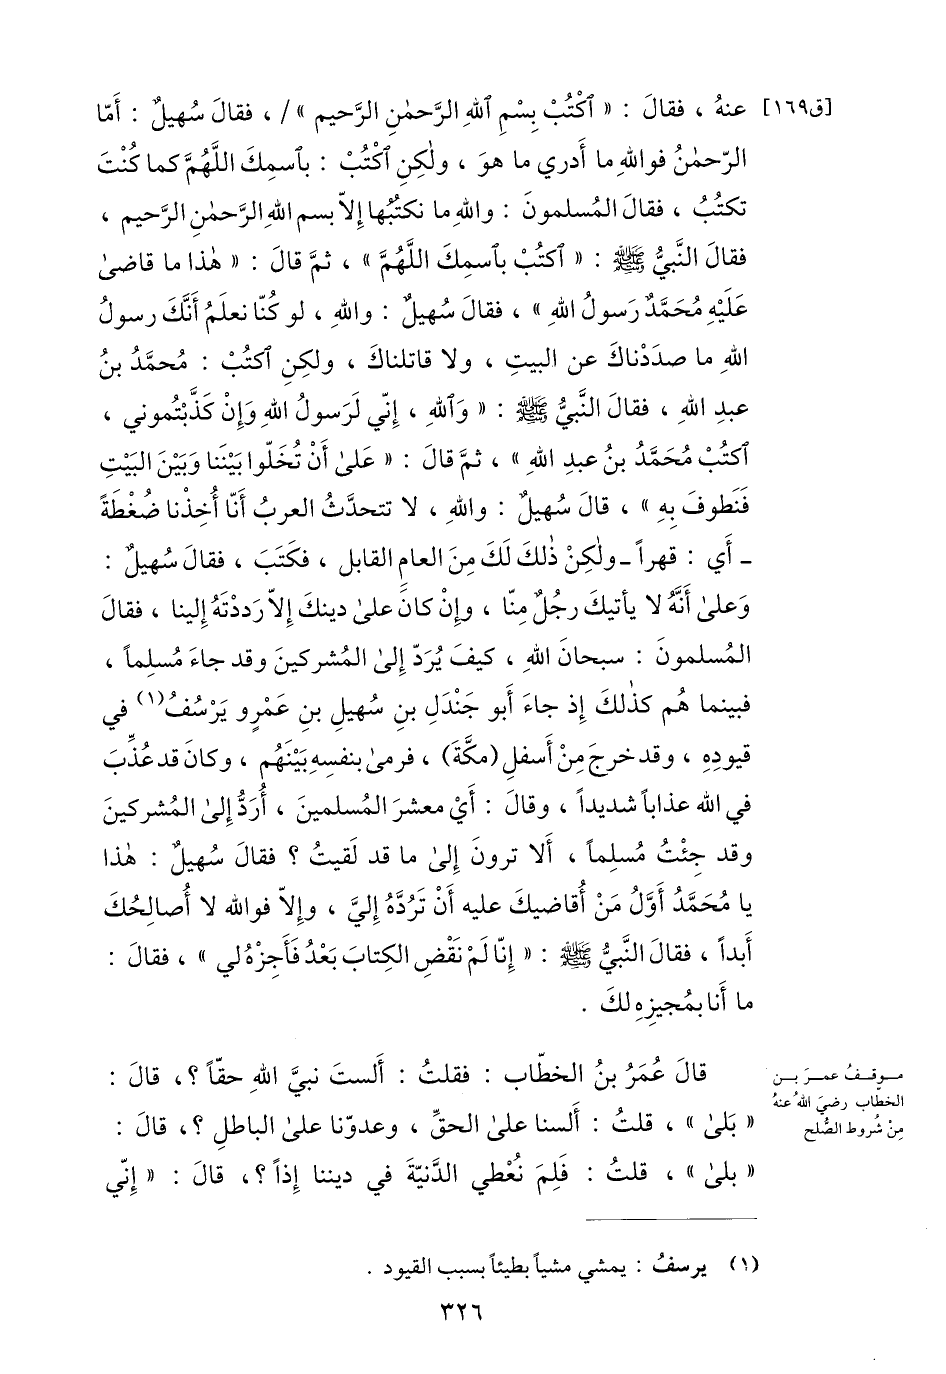 [ق١٦٩] عنهُ ، فقالَ : « ٱكْتُبْ بِسْمِ ٱللهِ الرَّحمٰنِ الرَّحيم »/ ، فقالَ سُهيلٌ : أَمّا
الرّحمٰنُ فواللهِ ما أَدري ما هوَ ، ولٰكِن ٱكْتُبْ : بٱسمِكَ اللَّهُمَّ كما كُنْتَ
تكتُبُ ، فقالَ المُسلمونَ : واللهِ ما نكتُبُها إلاّ بسم اللهِ الرَّحمٰنِ الرَّحيم ،
فقالَ النَّبيُّ ﷺ : « ٱكتُبْ بٱسمِكَ اللَّهُمَّ » ، ثمَّ قالَ : « هٰذا ما قاضىٰ
عَلَيْهِ مُحَمَّدٌ رَسولُ اللهِ » ، فقالَ سُهيلٌ : واللهِ ، لو كُنّا نعلَمُ أَنَّكَ رسولُ
اللهِ ما صدَدْناكَ عن البيتِ ، ولا قاتلناكَ ، ولكِن ٱكتُبْ : مُحمَّدُ بنُ
عبدِ اللهِ ، فقالَ النَّبيُّ ﷺ : « وَٱللهِ ، إنّي لَرَسولُ اللهِ وَإنْ كَذَّبْتُموني ،
ٱكتُبْ مُحَمَّدُ بنُ عبدِ اللهِ » ، ثمَّ قالَ : « عَلىٰ أَنْ تُخَلّوا بيْنَنا وَبَيْنَ البَيْتِ
فَنَطوفَ بِهِ » ، قالَ سُهيلٌ : واللهِ ، لا تتحدَّثُ العربُ أَنّا أُخِذْنا ضُغْطَةً
ـ أَي : قهراً ـ ولٰكِنْ ذٰلكَ لَكَ مِنَ العام القابل ، فكَتَبَ ، فقالَ سُهيلٌ :
وَعلىٰ أَنَّهُ لا يأتيكَ رجُلٌ مِنّا ، وإنْ كانَ علىٰ دينكَ إلاّ رَددْتَهُ إلينا ، فقالَ
المُسلمونَ : سبحانَ اللهِ ، كيفَ يُرَدّ إلىٰ المُشركينَ وقد جاءَ مُسلِماً ،
فبينما هُم كذٰلكَ إذ جاءَ أَبو جَنْدَلِ بنِ سُهيلِ بنِ عَمْرٍو يَرْسُفُ(١) في
قيودِهِ ، وقد خرجَ مِنْ أَسفلِ (مكَّةَ) ، فرمىٰ بنفسِهِ بَيْنَهُم ، وكانَ قد عُذِّبَ
في الله عذاباً شديداً ، وقالَ : أَيْ معشرَ المُسلمينَ ، أُرَدُّ إلىٰ المُشركينَ
وقد جِئْتُ مُسلِماً ، أَلا ترونَ إلىٰ ما قد لَقيتُ ؟ فقالَ سُهيلٌ : هٰذا
يا مُحَمَّدُ أَوَّلُ مَنْ أُقاضيكَ عليه أَنْ تَرُدَّهُ إليَّ ، وإلاّ فوالله لا أُصالِحُكَ
أَبداً ، فقالَ النَّبيُّ ﷺ : « إنّا لَمْ نَقْضِ الكِتابَ بَعْدُ فَأَجِزْهُ لي » ، فقالَ :
ما أَنا بمُجيزِهِ لكَ .
موقفُ عمرَ بن
الخطّاب رضيَ اللهُ عنهُ
مِنْ شُروط الصُّلح
قالَ عُمَرُ بنُ الخطّاب : فقلتُ : أَلستَ نبيَّ اللهِ حقّاً ؟، قالَ :
« بَلىٰ » ، قلتُ : أَلسنا علىٰ الحقِّ ، وعدوّنا علىٰ الباطلِ ؟، قالَ :
« بلىٰ » ، قلتُ : فَلِمَ نُعْطي الدَّنيّةَ في ديننا إذاً ؟، قالَ : « إنّي
(١) يرسفُ : يمشي مشياً بطيئاً بسبب القيود .
٣٢٦